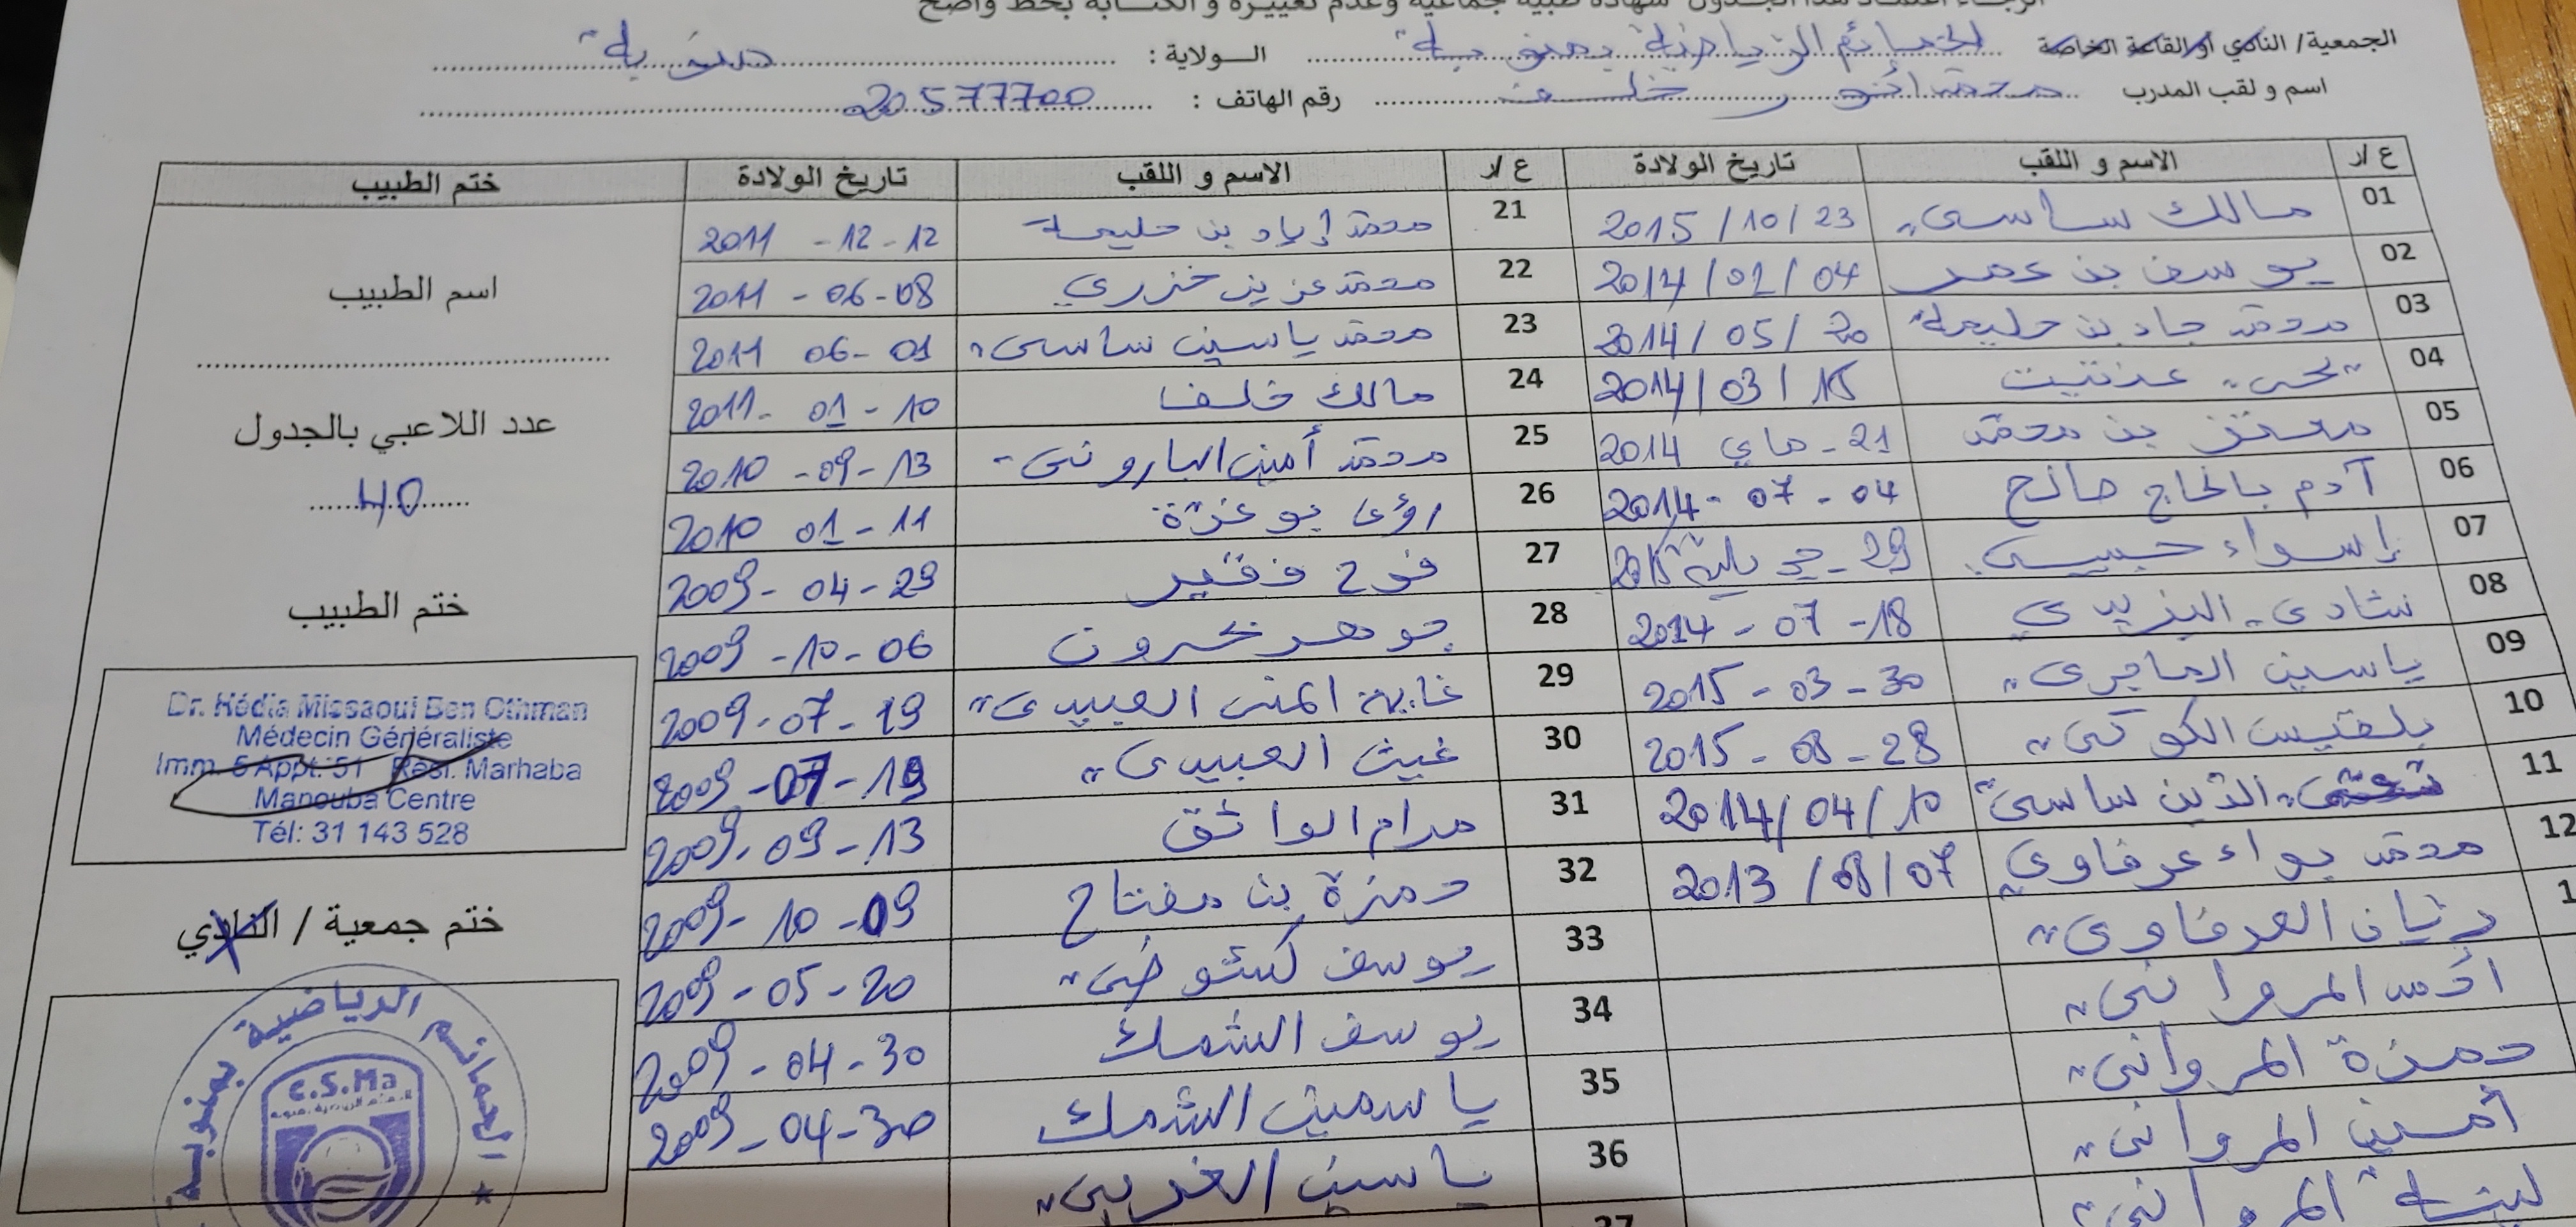 الجمعية/ النادي او القاعة الخاصة الحمائم الرياضية بمنوبة الولاية : منوبة
اسم و لقب المدرب محمد أنور خلف رقم الهاتف : 20577700
ع/ر الاسم و اللقب تاريخ الولادة ع/ر الاسم و اللقب تاريخ الولادة ختم الطبيب
01 مالك ساسي 2015/10/23 21 محمد إياد بن حليمة 2011 -12-12
02 يوسف بن عمر 2014/01/04 22 محمد عزيز خزري 2011 - 06-08
03 محمد جاد بن حليمة 2014/05/20 23 محمد ياسين ساسي 2011 06-01
04 يحي 2014/03/15 24 مالك خلف 2011- 01-10
05 معتز بن محمد 21-ماي 2014 25 محمد أمين الباروني 2010 -09-13
06 آدم بالحاج صالح 2014- 07-04 26 رؤى بوعزة 2010 01-11
07 إسراء حبيبي 29-جويلية 27 فرح فقير 2009- 04-29
08 شادي اليزيدي 2014-07-18 28 جوهر 2009 -10-06
09 ياسين الماجري 2015-03-30 29 غاية المنى العبيدي 2009-07-19
10 بلقيس الكوكي 2015-08-28 30 غيث العبيدي 2009-07-19
11 الدين ساسي 2014/04/10 31 مرام الواثق 2009-09-13
12 محمد براء عرفاوي 2013/08/07 32 حمزة بن مفتاح 2009-10-09
1 العرفاوي 33 يوسف 2009-05-20
المرواني 34 يوسف الشمك 2009-04-30
حمزة المرواني 35 ياسمين الشمك 2009-04-30
أمين المرواني 36 ياسين الغربي
المرواني 37
اسم الطبيب
عدد اللاعبي بالجدول
40
ختم الطبيب
Dr. Hédia Missaoui Ben Othman
Médecin Généraliste
Imm. 5 Appt. 51 Resi. Marhaba
Manouba Centre
Tél: 31 143 528
ختم جمعية / النادي
الحمائم الرياضية بمنوبة
C.S.Ma